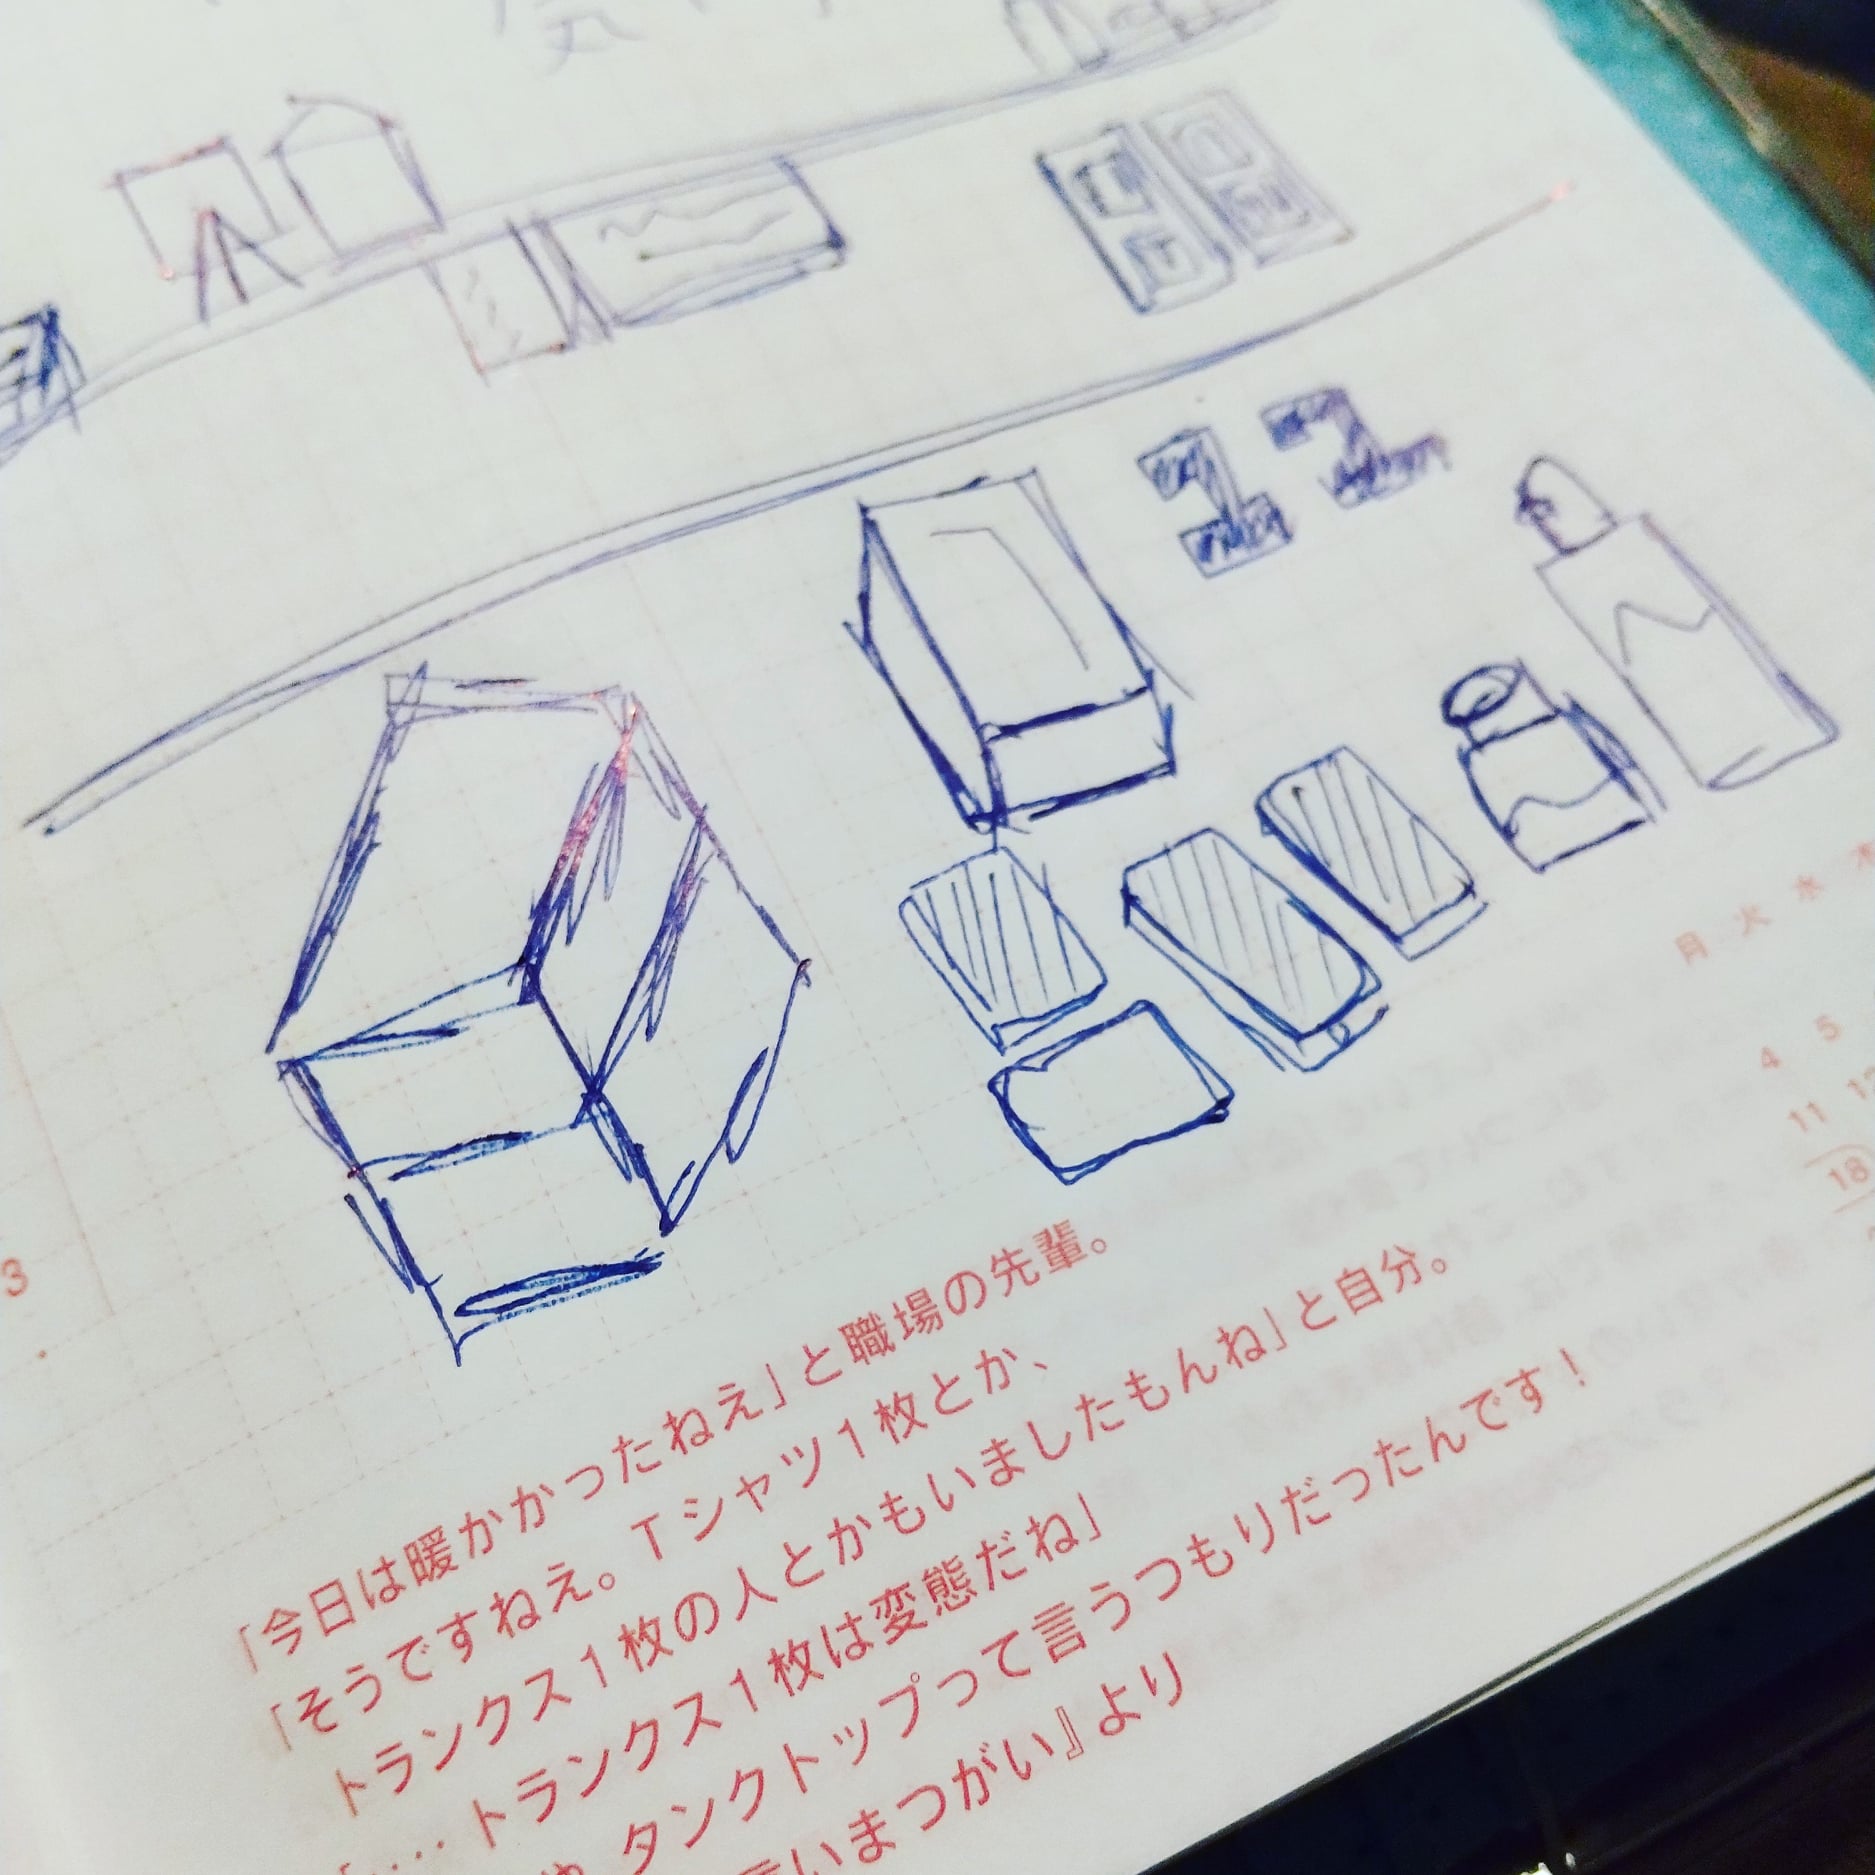 月 火 水 木
4 5
11 12
18
3
「今日は暖かかったねえ」と職場の先輩。
「そうですねえ。Tシャツ1枚とか、
トランクス1枚の人とかもいましたもんね」と自分。
「‥‥トランクス1枚は変態だね」
タンクトップって言うつもりだったんです！
言いまつがい』より